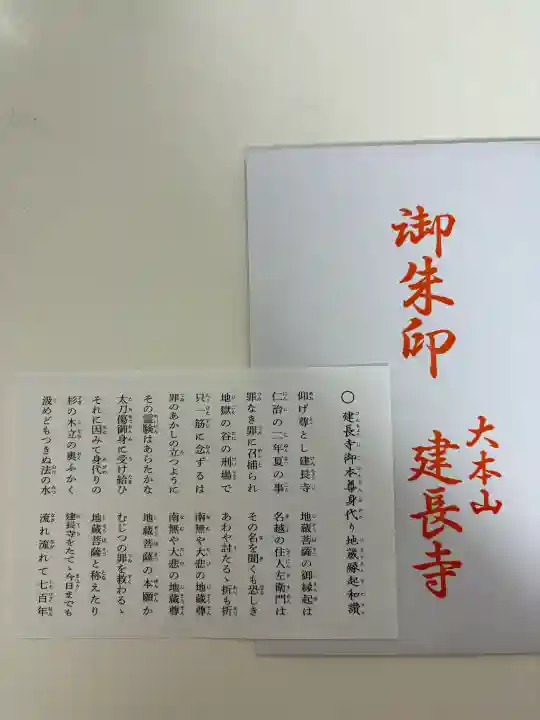 御朱印
大本山
建長寺
〇 建長寺御本尊身代り地蔵縁起和讃
仰げ尊とし建長寺 地蔵菩薩の御縁起は
仁治の二年夏の事 名越の住人左衛門は
罪なき罪に召捕られ その名を聞くも恐しき
地獄の谷の刑場で あわや討たるゝ折も折
只一筋に念ずるは 南無や大悲の地蔵尊
罪のあかしの立つように 南無や大悲の地蔵尊
その霊験はあらたかな 地蔵菩薩の本願か
太刀傷御身に受け給ひ むじつの罪を救わるゝ
それに因みて身代りの 地蔵菩薩と称えたり
杉の木立の奥ふかく 建長寺をたてゝ今日までも
汲めどもつきぬ法の水 流れ流れて七百年